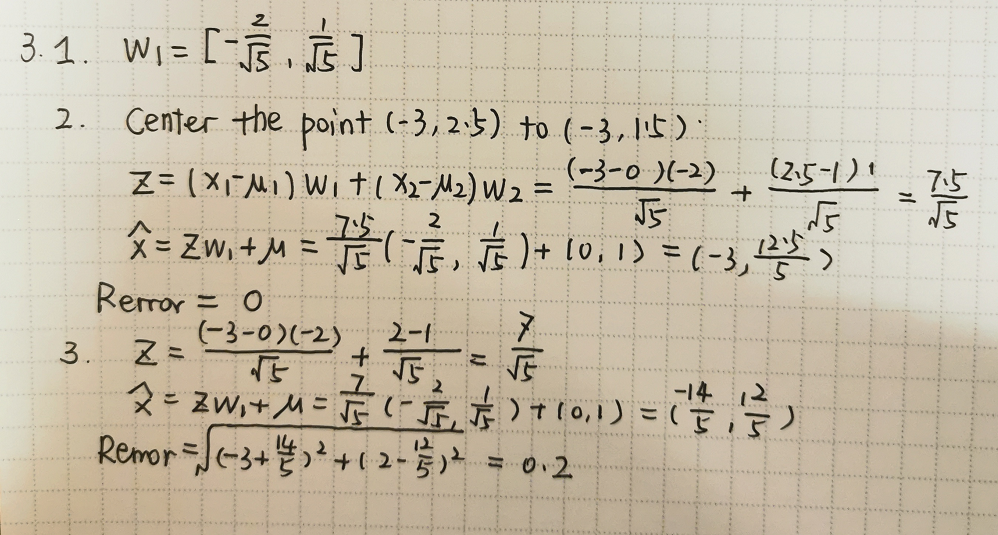 3.1. W₁ = [-2/√5, 1/√5]
2. Center the point (-3, 2.5) to (-3, 1.5).
Z = (x₁-μ₁)W₁ + (x₂-μ₂)W₂ = (-3-0)(-2)/√5 + (2.5-1)1/√5 = 7.5/√5
x̂ = ZW₁+μ = 7.5/√5 (-2/√5, 1/√5) + (0, 1) = (-3, 12.5/5)
Rerror = 0
3. Z = (-3-0)(-2)/√5 + 2-1/√5 = 7/√5
x̂ = ZW₁+μ = 7/√5 (-2/√5, 1/√5) + (0, 1) = (-14/5, 12/5)
Rerror = √(-3+14/5)² + (2-12/5)² = 0.2